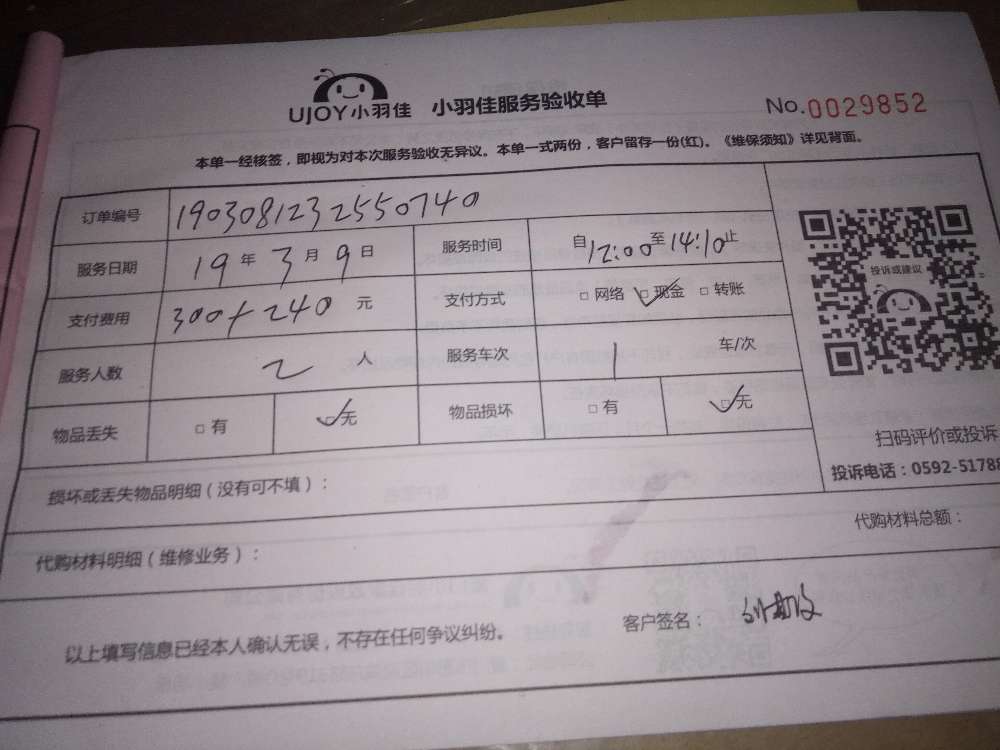 UJOY小羽佳 小羽佳服务验收单 No.0029852
本单一经核签，即视为对本次服务验收无异议。本单一式两份，客户留存一份(红)。《维保须知》详见背面。
订单编号 1903081232550740
服务日期 19年3月9日 服务时间 自12:00至14:10止
支付费用 300+240元 支付方式 □网络 ☑现金 □转账
服务人数 2人 服务车次 1 车/次
物品丢失 □有 ☑无 物品损坏 □有 ☑无
投诉或建议
扫码评价或投诉
投诉电话：0592-51788
损坏或丢失物品明细（没有可不填）：
代购材料明细（维修业务）： 代购材料总额：
以上填写信息已经本人确认无误，不存在任何争议纠纷。 客户签名：